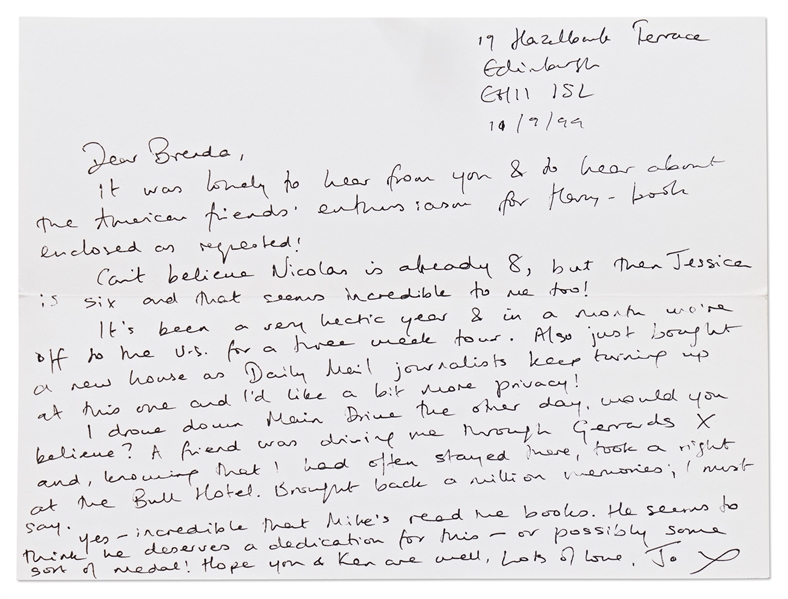 19 Hazelbank Terrace
Edinburgh
EH11 1SL
10/9/99
Dear Brenda,
It was lovely to hear from you & to hear about
the American friends' enthusiasm for Harry - book
enclosed as requested!
Can't believe Nicolas is already 8, but then Jessica
is six and that seems incredible to me too!
It's been a very hectic year & in a month we're
off to the U.S. for a three week tour. Also just bought
a new house as Daily Mail journalists keep turning up
at this one and I'd like a bit more privacy!
I drove down Main Drive the other day, would you
believe? A friend was driving me through Gerrards X
and, knowing that I had often stayed there, took a right
at the Bull Hotel. Brought back a million memories, I must
say.
Yes - incredible that Mike's read the books. He seems to
think he deserves a dedication for this - or possibly some
sort of medal! Hope you & Ken are well, Lots of love, Jo X